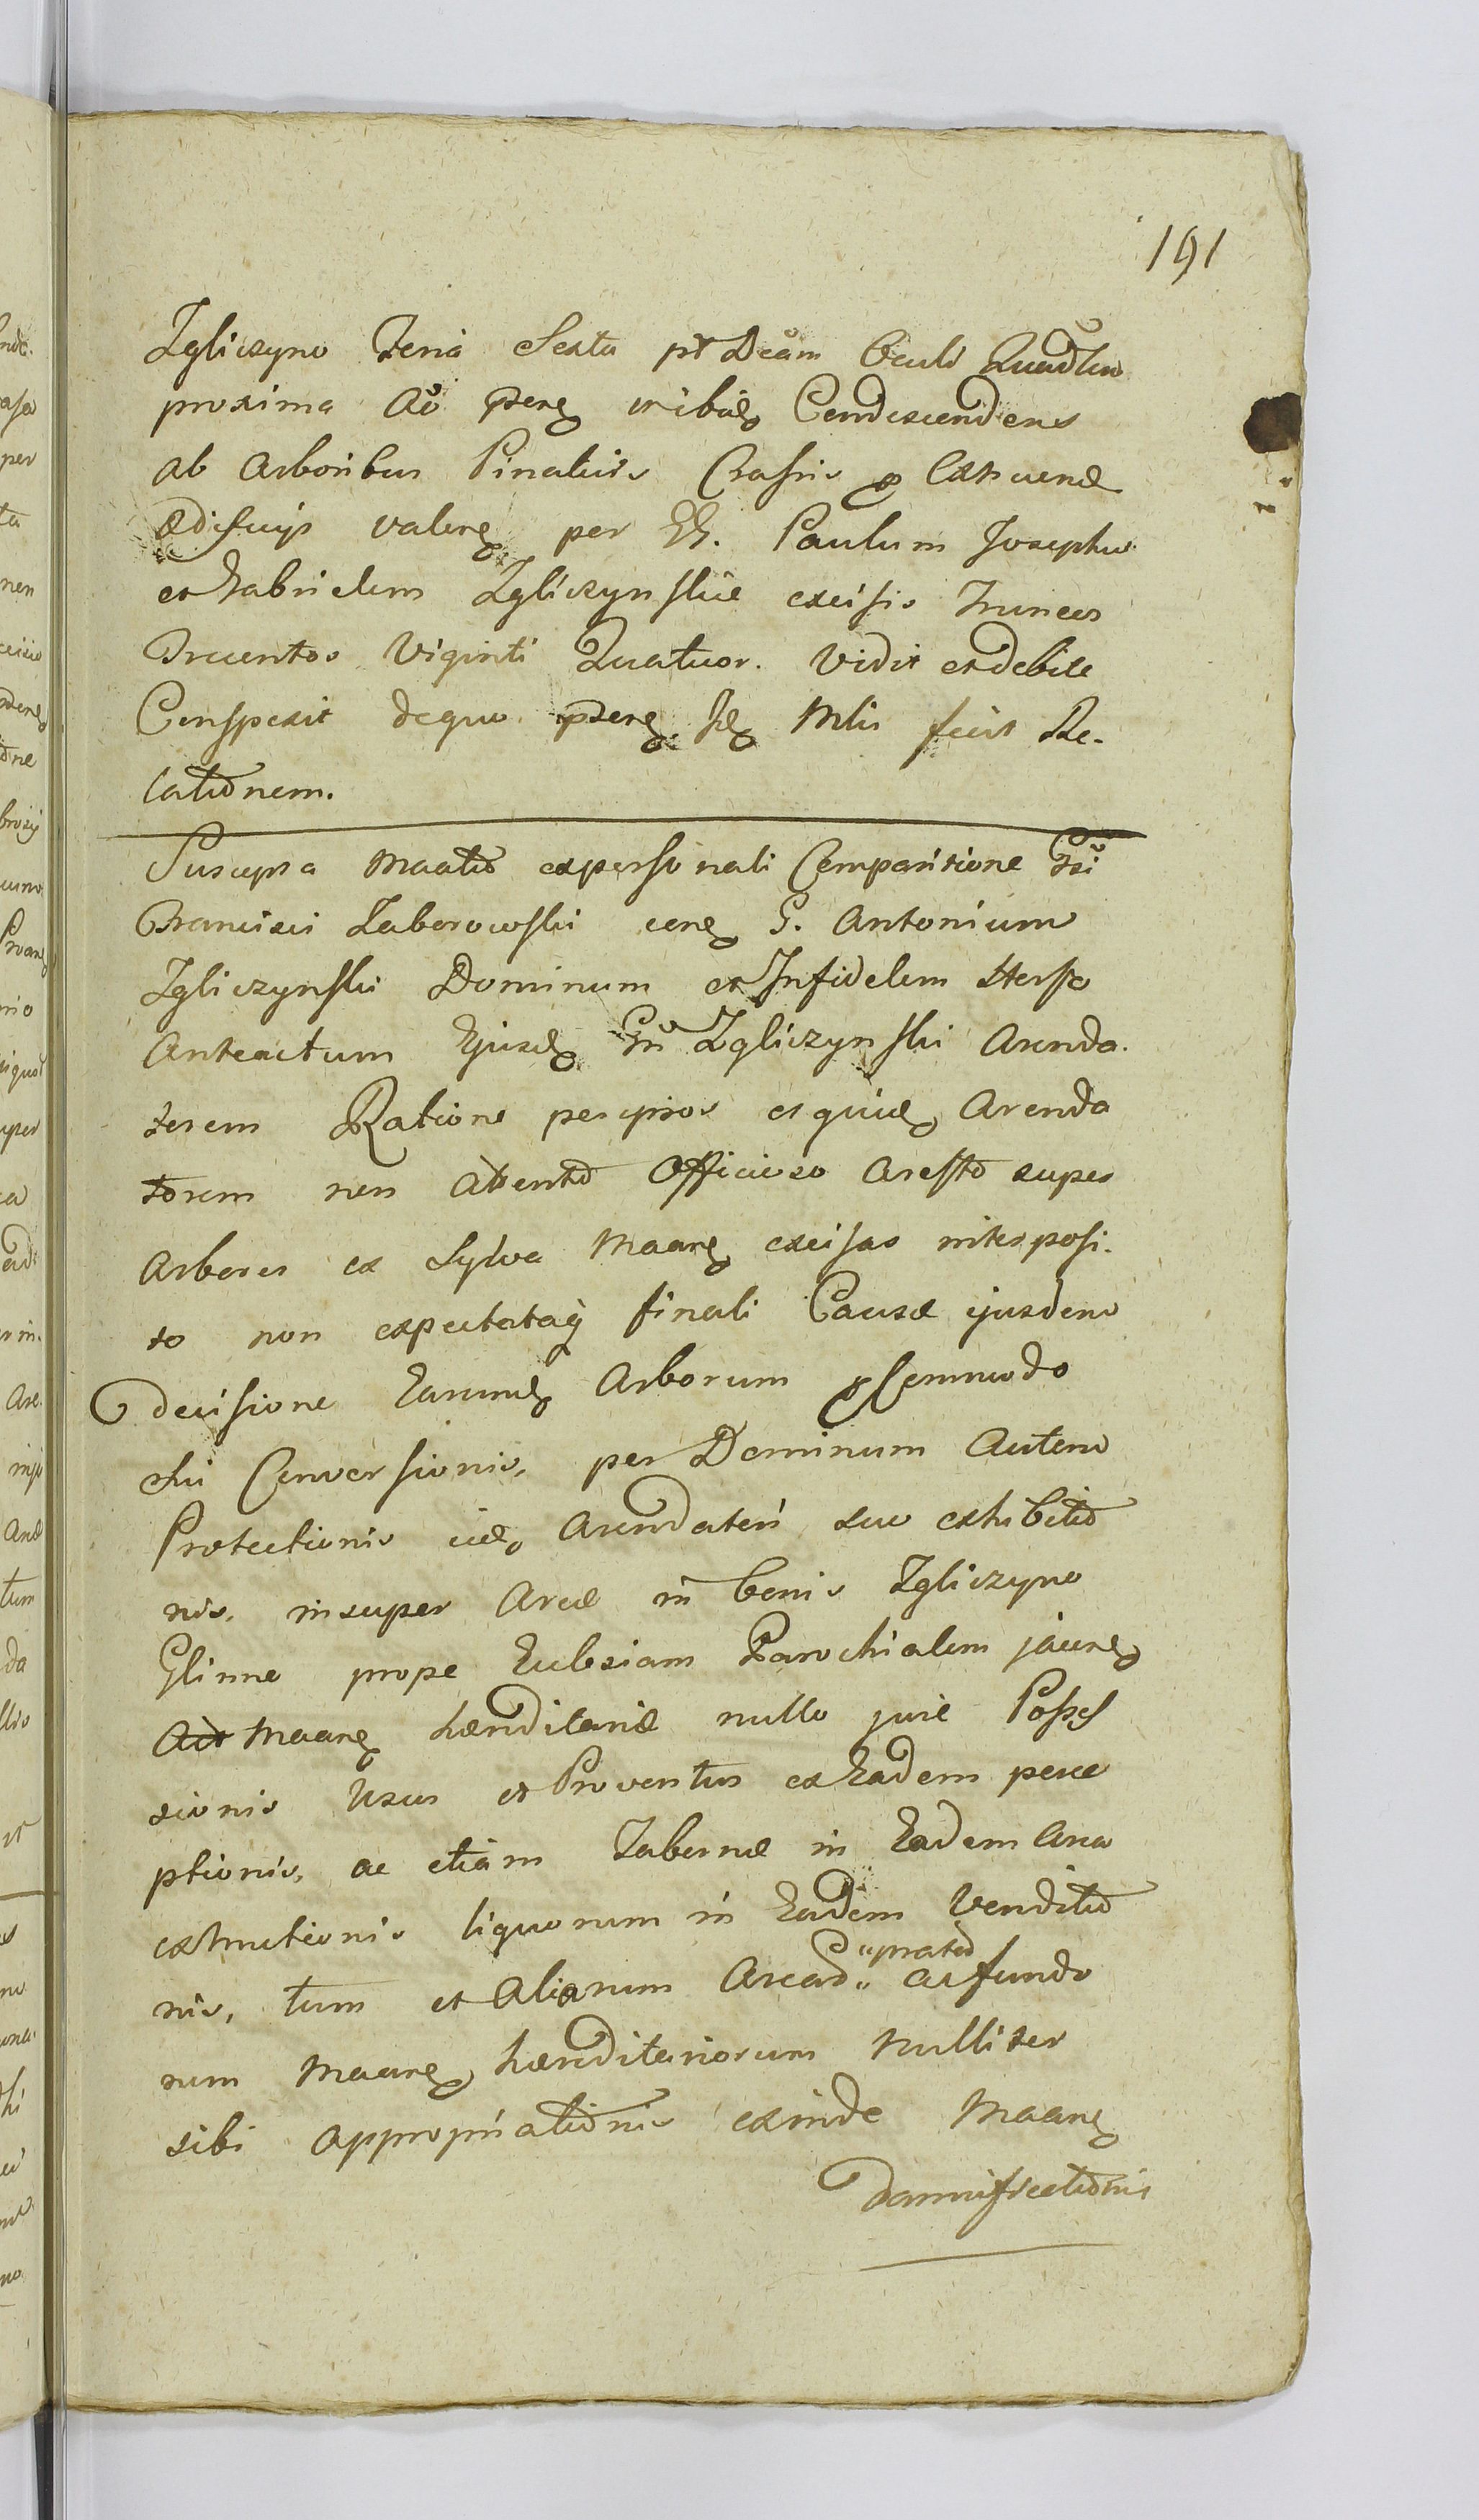 191
Zgliczyno Feria Sexta pt Dcam Oculi Quadlem
proxima Ao pnte in ibidem Condescendens
ab Arboribus Pinaticis Crassis p Extruend
Ædificijs valen per GG. Paulum Josephum
et Gabrielem Zgliczynskie excisis Truncos
Trecentos Viginti Quatuor. Vidit et debite
Conspexit de quo pten Mlis fecit Re-
lationem.
Suscepta Maatio ex personali Comparitione Gsi
Francisci Zaborowski con G. Antonium
Zgliczynski Dominum et Infidelem Herszo
Anteactum Ejusd Gsi Zgliczynski Arenda-
torem Ratione per ipsos et quid Arenda
torem non attento Officioso Aresto super
Arbores ex Sylva Maan excisas interposi-
to non expectataq finali Causæ ejusdem
Decisione Earund Arborum p Commodo
sui Conversionis, per Dominum Autem
Protectionis eid Arendatori suo exhibitio
nis, insuper Areæ in bonis Zgliczyno
Glinne prope Eclesiam Parochialem jacen
Act Maan hæreditariæ nullo jure Posses
sionis Usus et Proventus ex Eadem perce
ptionis, ac etiam Tabernæ in Eadem Area
extructionis liquorum in Eadem Venditio
nis, tum et Aliarum Arcar „pratoru
„ ac fundo
rum Maan hæreditariorum Nulliter
sibi Appropriationis exinde Maan
Damnificationis